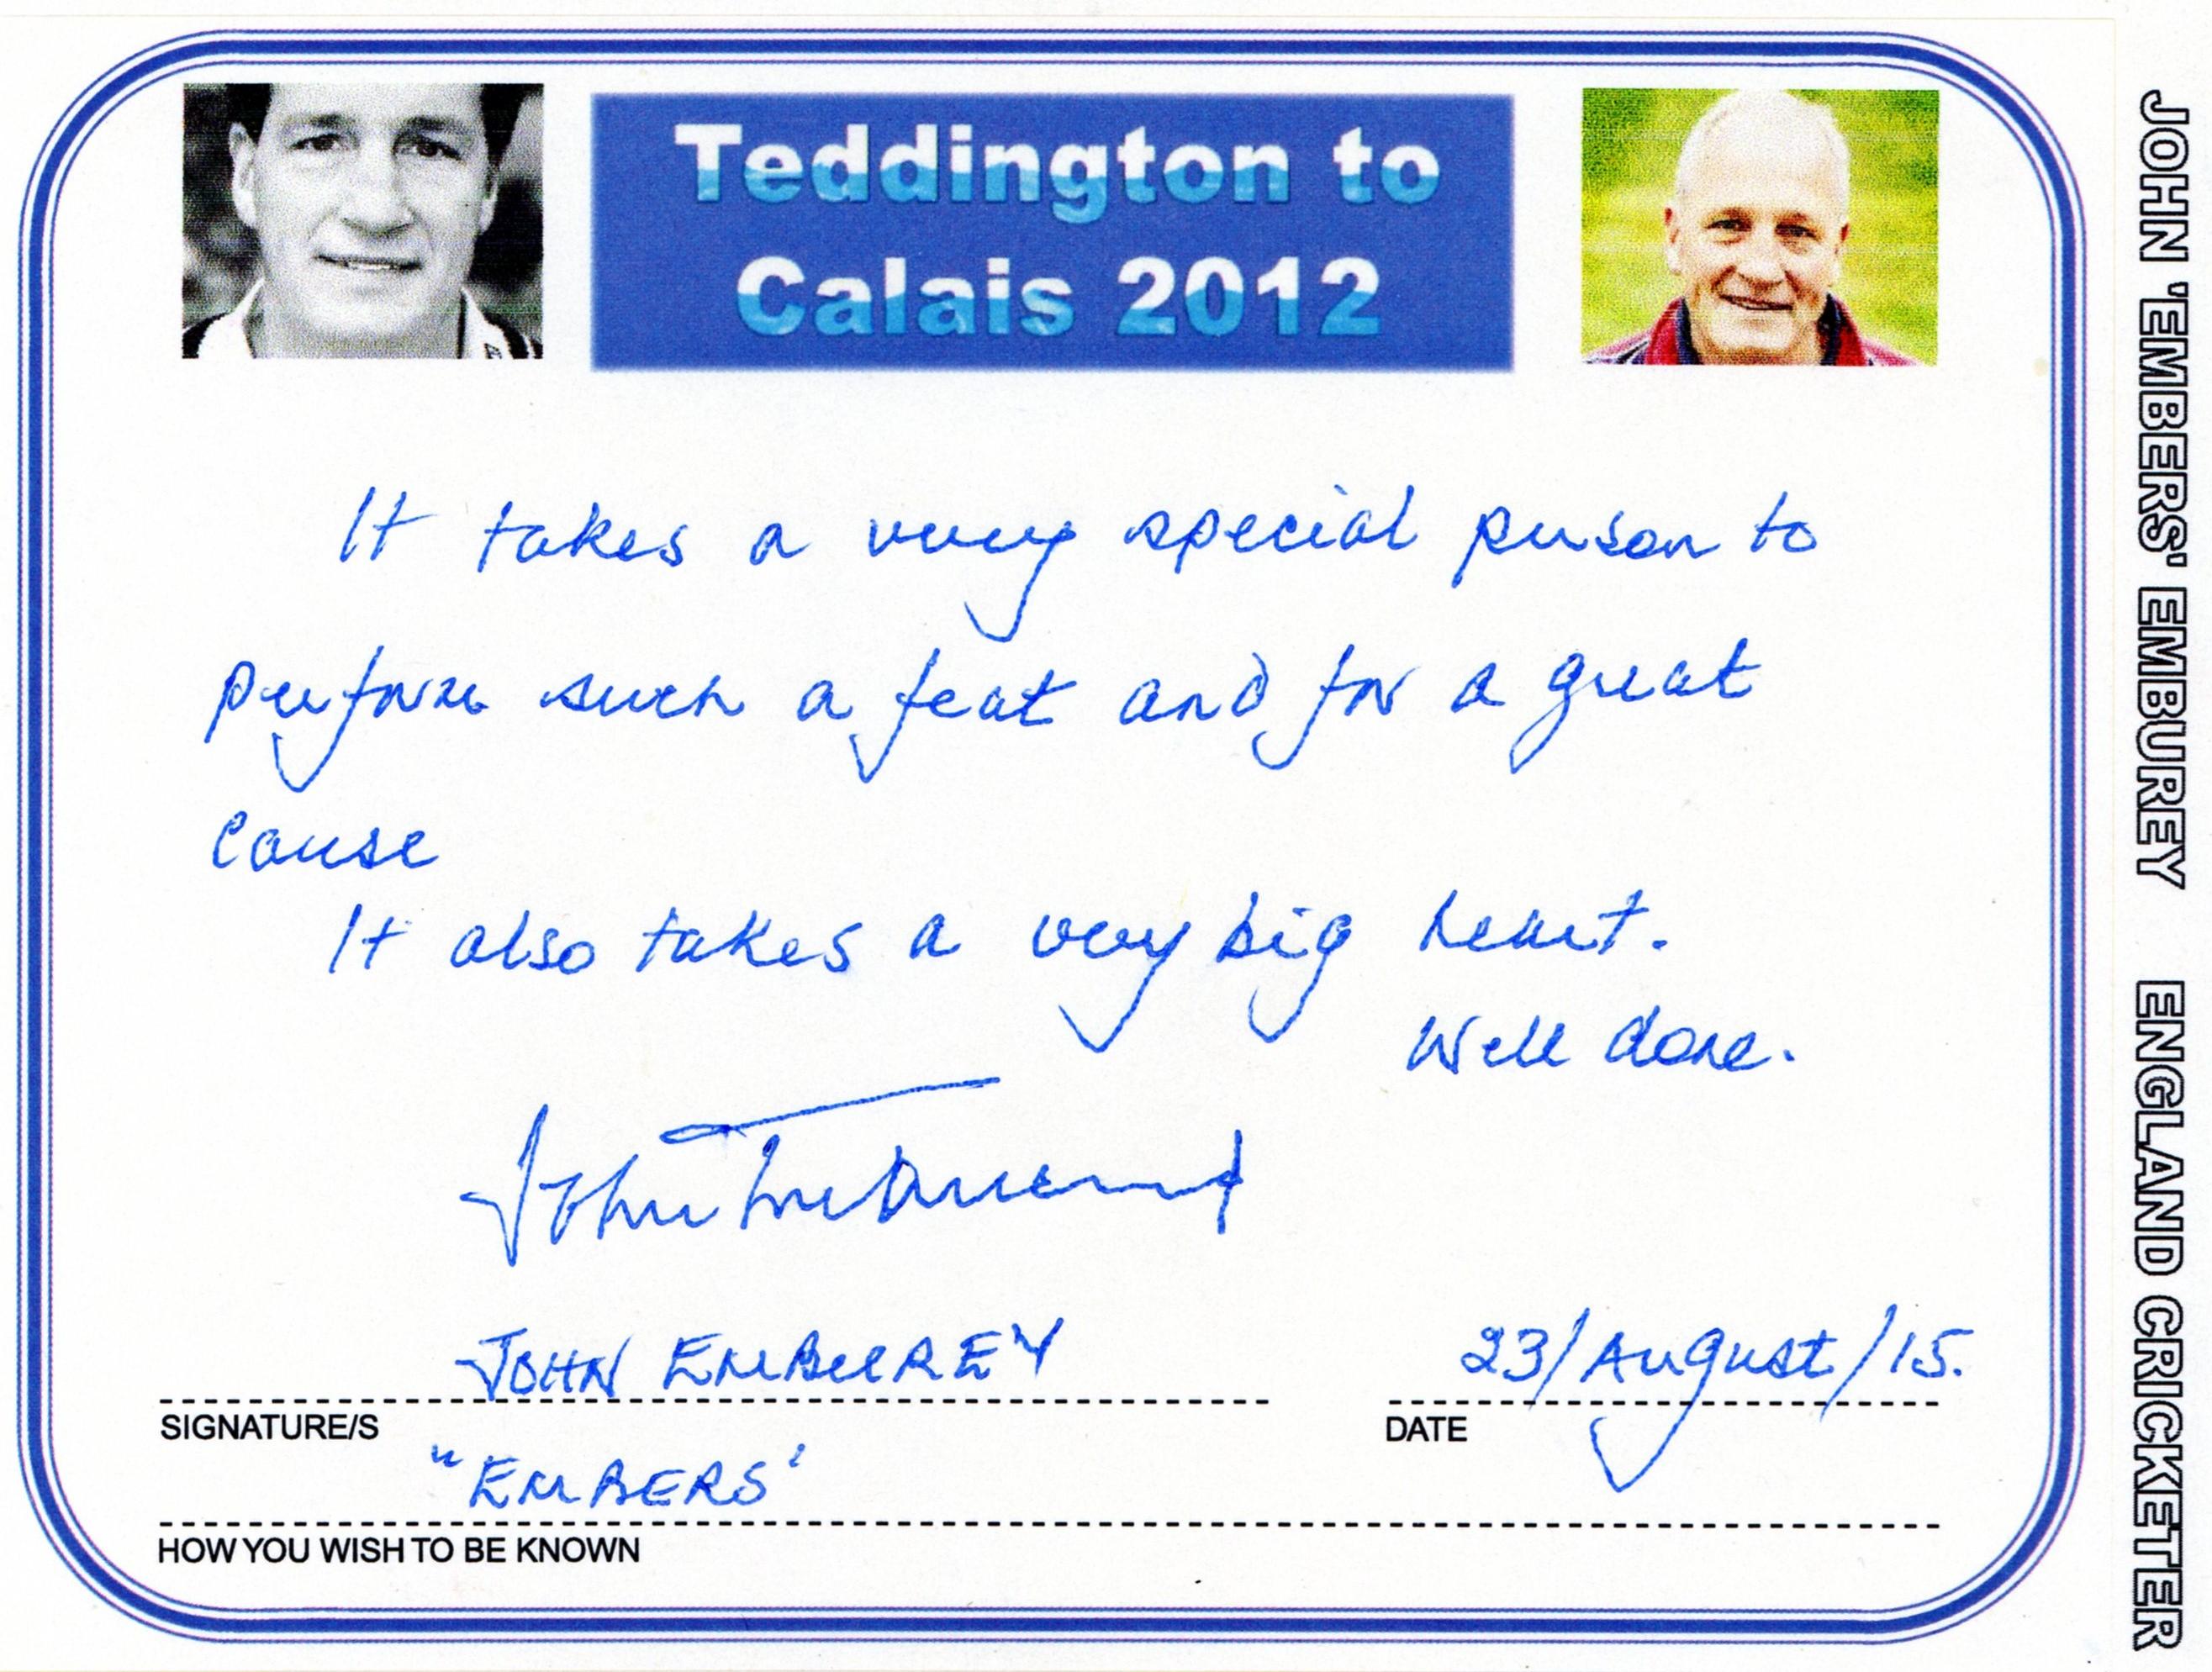 Teddington to
Calais 2012
It takes a very special person to
perform such a feat and for a great
cause
It also takes a very big heart.
Well done.
John Emburey
JOHN EMBUREY
23/August/15.
SIGNATURE/S
DATE
"EMBERS'
HOW YOU WISH TO BE KNOWN
JOHN 'EMBERS' EMBUREY ENGLAND CRICKETER